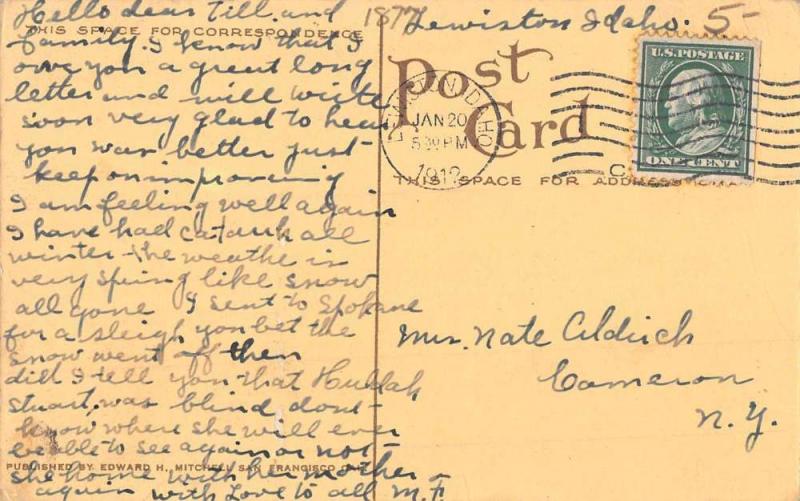 Hello dear Till. and
THIS SPACE FOR CORRESPONDENCE
family. I know that I
owe you a great long
letter and will write
soon very glad to hear
you was better just
keep on improving
I am feeling well again
I have had catarrh all
winter the weathe is
very spring like snow
all gone I sent to Spokane
for a sleigh you bet the
snow went off then
did I tell you that Huldah
Stuart, was blind dont
know where she will ever
be able to see again or not
PUBLISHED BY EDWARD H. MITCHELL SAN FRANCISCO
she home with her mother
again with Love to all M. F.
1877
Lewiston Idaho. 5-
Post
Card
LEWISTON IDAHO
JAN 20
530 PM
1912
U.S. POSTAGE
ONE CENT
THIS SPACE FOR ADDRESS
Mrs. Nate Aldrich
Cameron
N. Y.